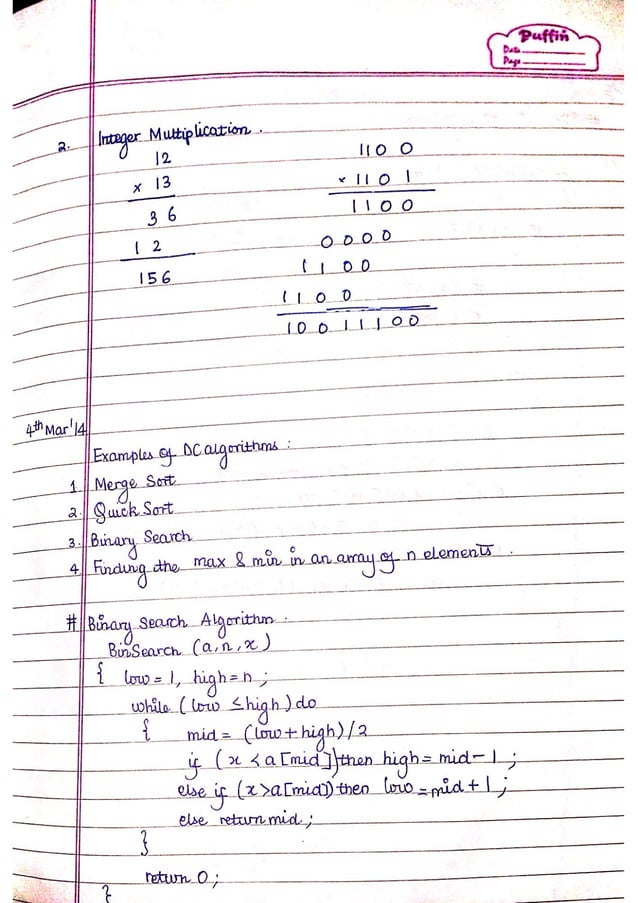 Puffin
Date
Page
2. Integer Multiplication.
12
x 13
3 6
1 2
156
1100
x 1101
1100
0000
1100
1100
10011100
4th Mar'14
Examples of DC algorithms:
1. Merge Sort
2. Quick Sort
3. Binary Search
4. Finding the max & min in an array of n elements.
# Binary Search Algorithm.
BinSearch (a,n,x)
{ low=1, high=n;
while (low ≤ high) do
{ mid = (low+high)/2
if (x < a[mid]) then high = mid-1;
else if (x>a[mid]) then low = mid+1;
else return mid;
}
return 0;
}